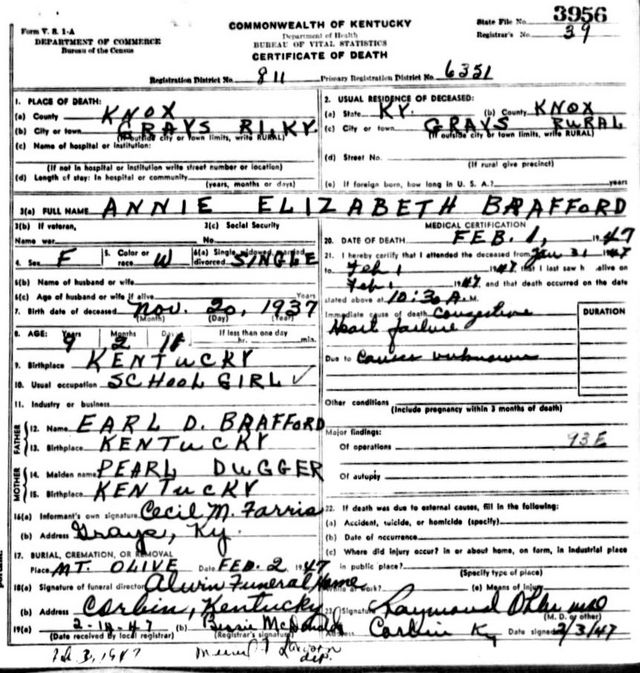 Form V. S. 1-A
DEPARTMENT OF COMMERCE
Bureau of the Census
COMMONWEALTH OF KENTUCKY
Department of Health
BUREAU OF VITAL STATISTICS
CERTIFICATE OF DEATH
State File No. 3956
Registrar's No. 39
Registration District No. 811 Primary Registration District No. 6351
1. PLACE OF DEATH:
(a) County KNOX
(b) City or town GRAYS R1, KY.
(If outside city or town limits, write RURAL)
(c) Name of hospital or institution:
(If not in hospital or institution write street number or location)
(d) Length of stay: In hospital or community
(years, months or days)
2. USUAL RESIDENCE OF DECEASED:
(a) State KY. (b) County KNOX
(c) City or town GRAYS RURAL
(If outside city or town limits, write RURAL)
(d) Street No.
(If rural give precinct)
(e) If foreign born, how long in U. S. A.? years
3(a) FULL NAME ANNIE ELIZABETH BRAFFORD
3(b) If veteran,
Name war
3(c) Social Security
No.
4. Sex F 5. Color or race W 6(a) Single, widowed, married divorced SINGLE
6(b) Name of husband or wife
6(c) Age of husband or wife if alive Years
7. Birth date of deceased Nov. 20, 1937
(Month) (Day) (Year)
8. AGE: Years Months Days If less than one day
9 2 11 hr. min.
9. Birthplace KENTUCKY
10. Usual occupation SCHOOL GIRL ✓
11. Industry or business
FATHER
12. Name EARL D. BRAFFORD
13. Birthplace KENTUCKY
MOTHER
14. Maiden name PEARL DUGGER
15. Birthplace KENTUCKY
16(a) Informant's own signature Cecil M. Farris
(b) Address Grays, Ky.
17. BURIAL, CREMATION, OR REMOVAL
Place MT. OLIVE Date FEB. 2 1947
18(a) Signature of funeral director Alwin Funeral Home
(b) Address Corbin, Kentucky
19(a) 2-18-47 (b) Bessie McDonald
(Date received by local registrar) (Registrar's signature)
Feb. 3, 1947
dep.
MEDICAL CERTIFICATION
20. DATE OF DEATH FEB. 1, 1947
21. I hereby certify that I attended the deceased from Jan 31 1947
to Feb 1 1947 that I last saw h alive on
Feb 1 1947, and that death occurred on the date
stated above at 10:30 A. M.
DURATION
Immediate cause of death Congestive
Heart failure
Due to Causes unknown
Other conditions
(Include pregnancy within 3 months of death)
Major findings:
Of operations 93E
Of autopsy
22. If death was due to external causes, fill in the following:
(a) Accident, suicide, or homicide (specify)
(b) Date of occurrence
(c) Where did injury occur? in or about home, on farm, in industrial place
in public place?
(Specify type of place)
(e) Means of Injury
23. Signature Raymond M.D.
(M. D. or other)
Address Corbin Ky Date signed 2/3/47